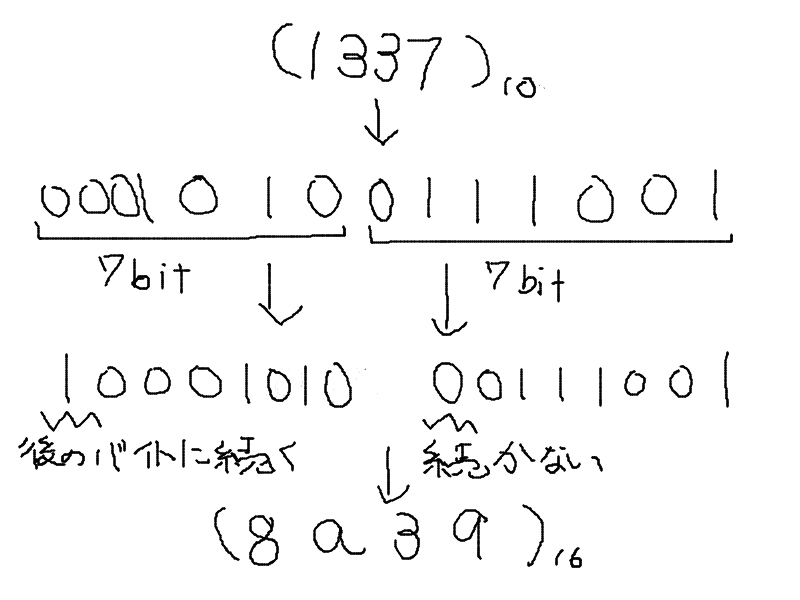 (1337)10
0001010 0111001
7bit 7bit
10001010 00111001
後のバイトに続く 続かない
(8a39)16